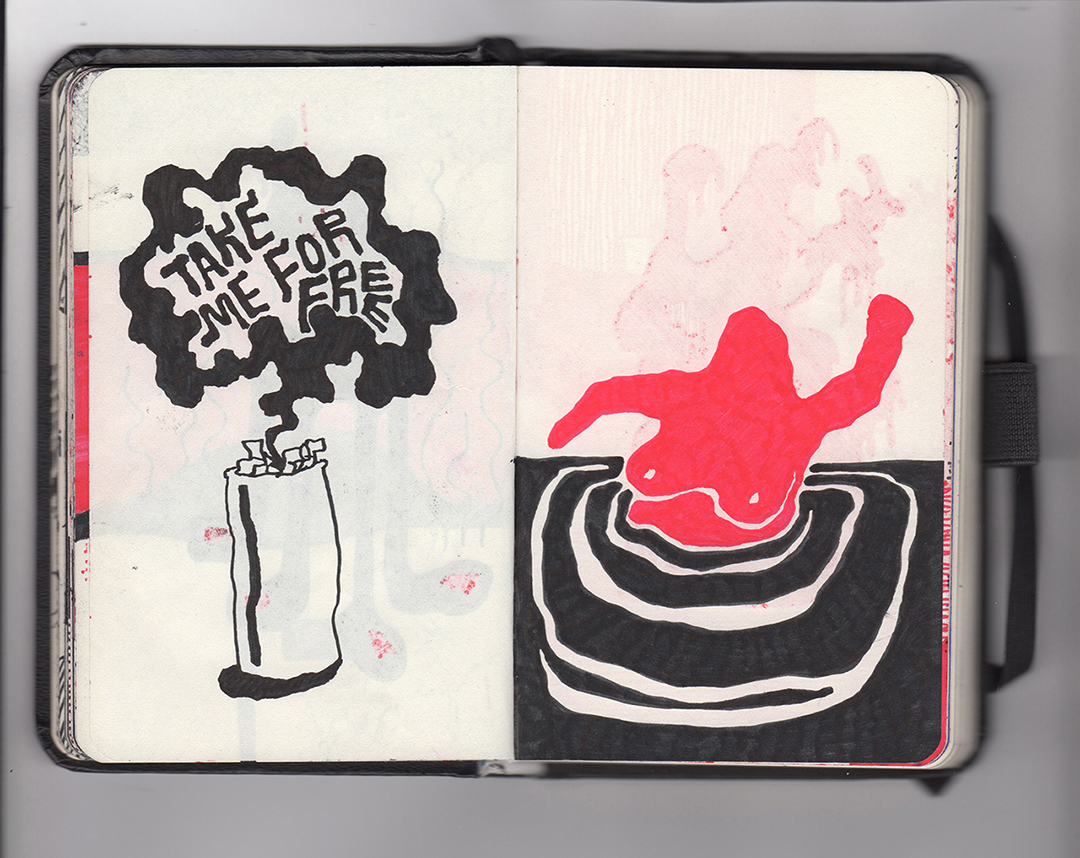 TAKE
ME FOR
FREE